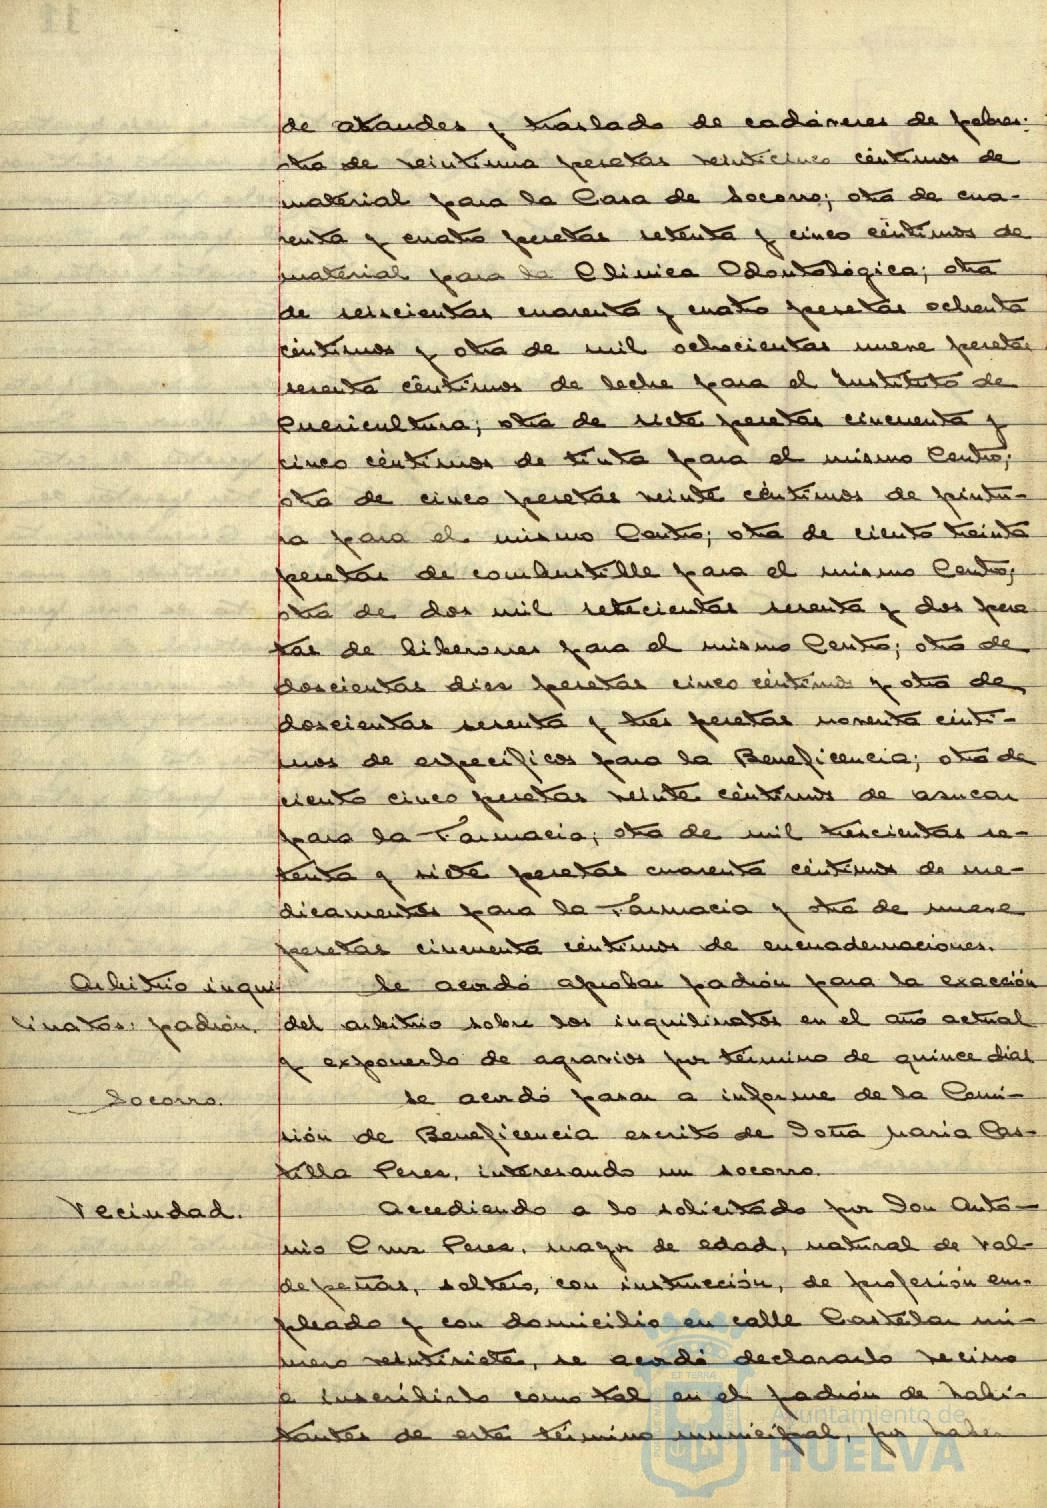 de ataudes y traslado de cadáveres de pobres:
otra de veintiuna pesetas veinticinco céntimos de
material para la Casa de Socorro; otra de cua-
renta y cuatro pesetas setenta y cinco céntimos de
material para la Clinica Odontológica; otra
de seiscientas cuarenta y cuatro pesetas ochenta
céntimos y otra de mil ochocientas nueve pesetas
sesenta céntimos de leche para el Instituto de
Puericultura; otra de siete pesetas cincuenta y
cinco céntimos de tinta para el mismo Centro;
otra de cinco pesetas veinte céntimos de pintu-
ra para el mismo Centro; otra de ciento treinta
pesetas de combustible para el mismo Centro;
otra de dos mil setecientas sesenta y dos pese
tas de biberones para el mismo Centro; otra de
doscientas diez pesetas cinco céntimos y otra de
doscientas sesenta y tres pesetas noventa cénti-
mos de específicos para la Beneficencia; otra de
ciento cinco pesetas veinte céntimos de azucar
para la Farmacia; otra de mil trescientas se-
tenta y siete pesetas cuarenta céntimos de me-
dicamentos para la Farmacia y otra de nueve
pesetas cincuenta céntimos de encuadernaciones.
Arbitrio inqui- Se acordó aprobar padrón para la exacción
linatos: padrón. del arbitrio sobre los inquilinatos en el año actual
y exponerlo de agravios por término de quince dias
Socorro. Se acordó pasar a informe de la Comi-
sión de Beneficencia escrito de Doña Maria Cas-
tilla Perez, interesando un socorro.
Vecindad. Accediendo a lo solicitado por Don Anto-
nio Cruz Perez, mayor de edad, natural de Val-
depeñas, soltero, con instrucción, de profesión em-
pleado y con domicilio en calle Castelar nú-
mero veintisiete, se acordó declararlo vecino
e inscribirlo como tal en el padrón de habi-
tantes de este término municipal, por haber
Ayuntamiento de
HUELVA